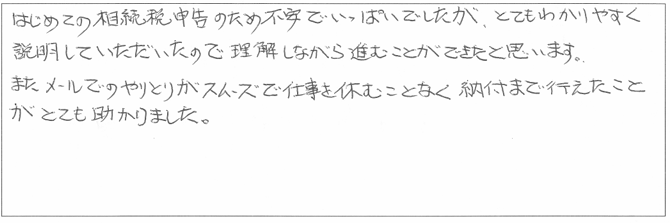 はじめての相続税申告のため不安でいっぱいでしたが、とてもわかりやすく
説明していただいたので理解しながら進むことができたと思います。
またメールでのやりとりがスムーズで仕事を休むことなく納付まで行えたこと
がとても助かりました。